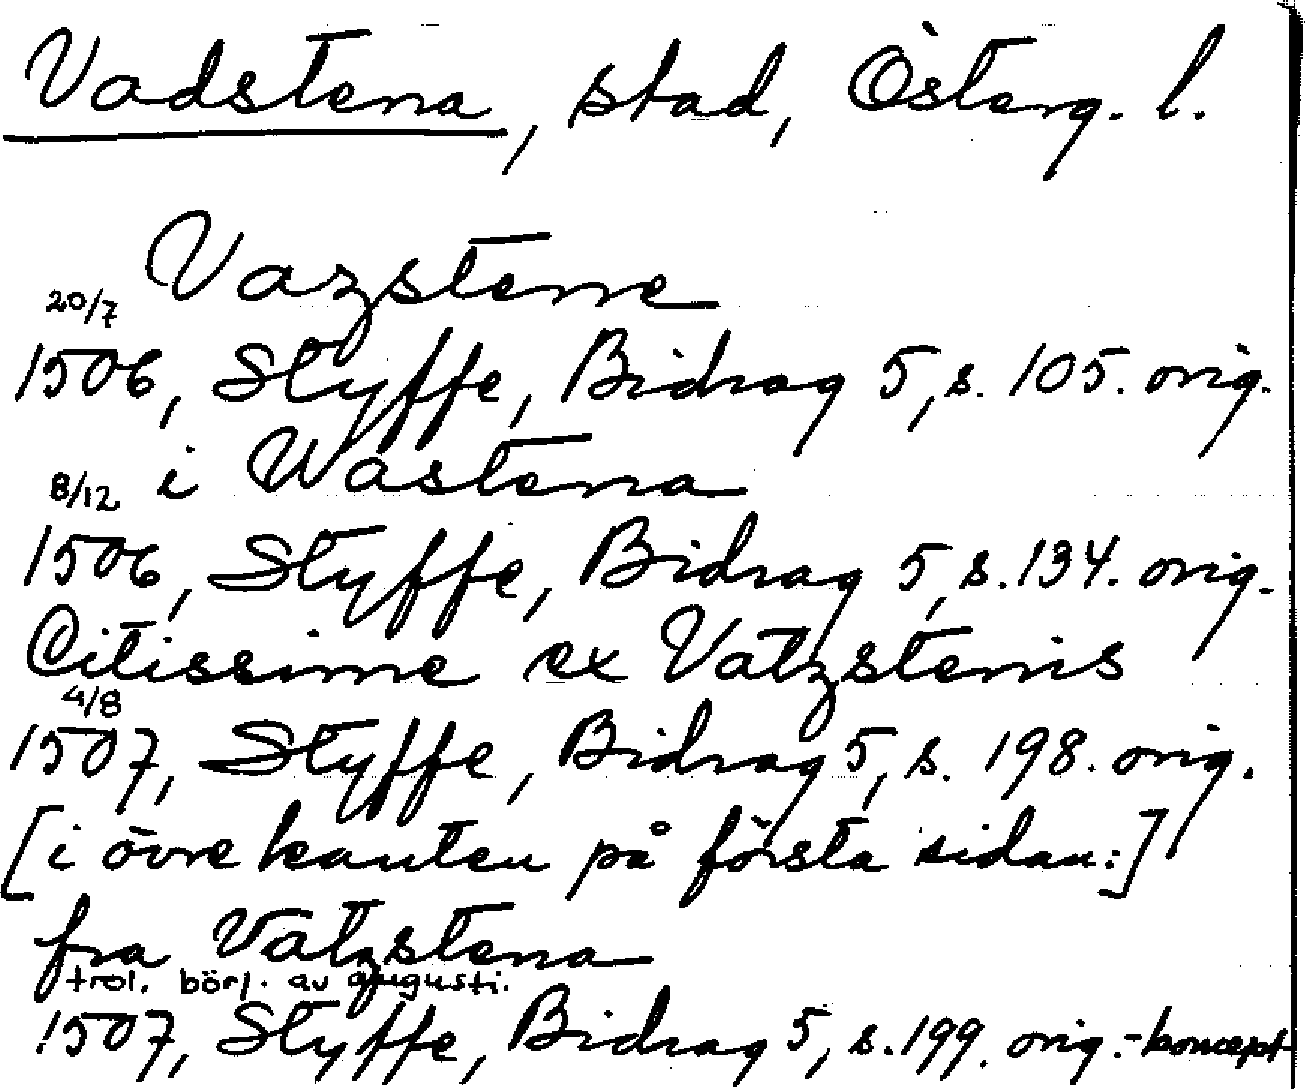 Vadstena, stad, Österg. l.
Vazstenne
20/7
1506, Styffe, Bidrag 5, s. 105. orig.
8/12 i Wastena
1506, Styffe, Bidrag 5, s. 134. orig.
Citissime ex Vatzstenis
4/8
1507, Styffe, Bidrag 5, s. 198. orig.
[i övre kanten på första sidan:]
fra Vatzstena
trol. börj. av augusti.
1507, Styffe, Bidrag 5, s. 199. orig.-koncept